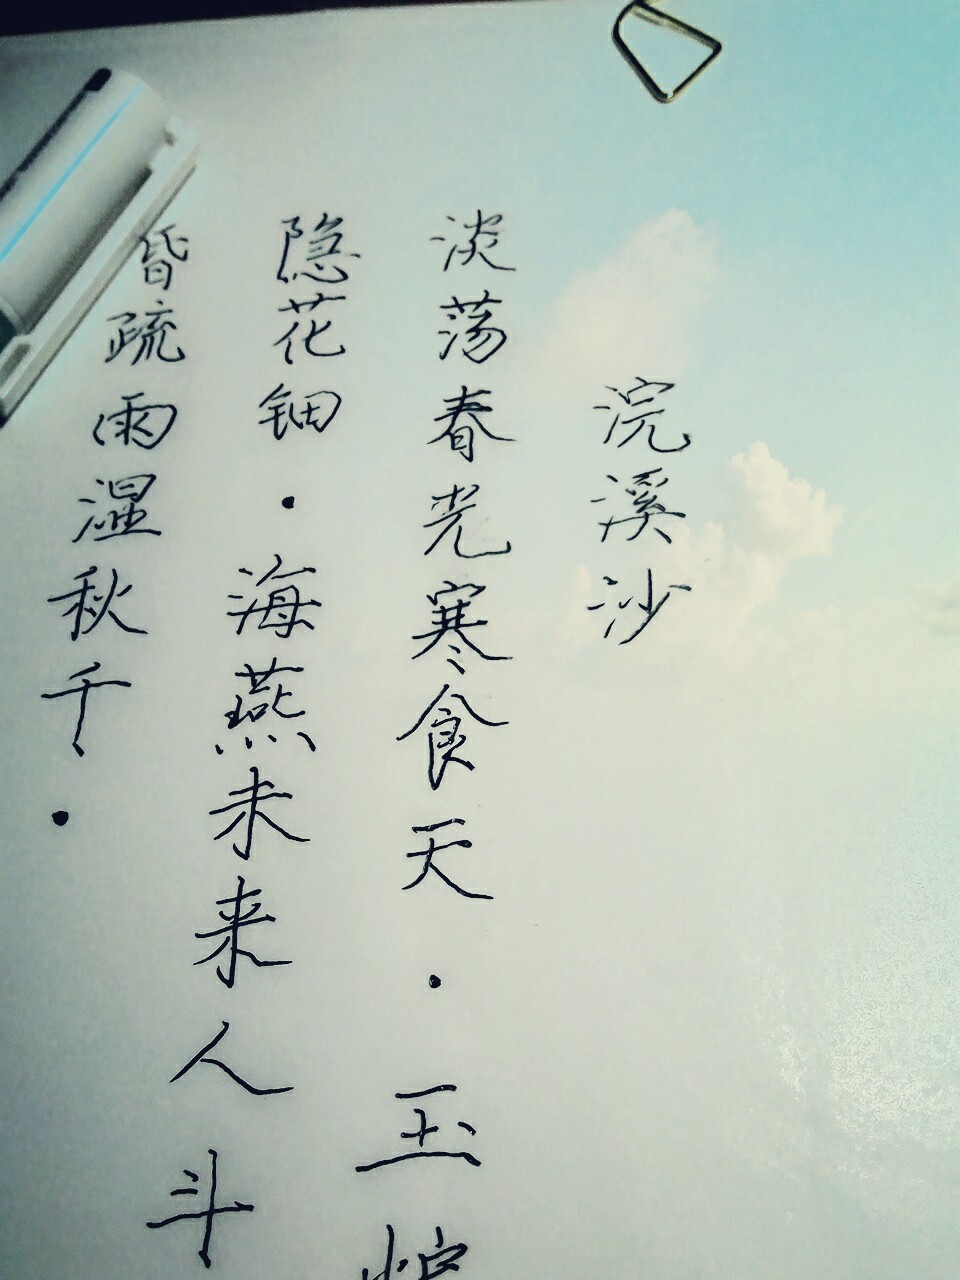 浣溪沙
淡荡春光寒食天·玉炉
隐花钿·海燕未来人斗
昏疏雨湿秋千·